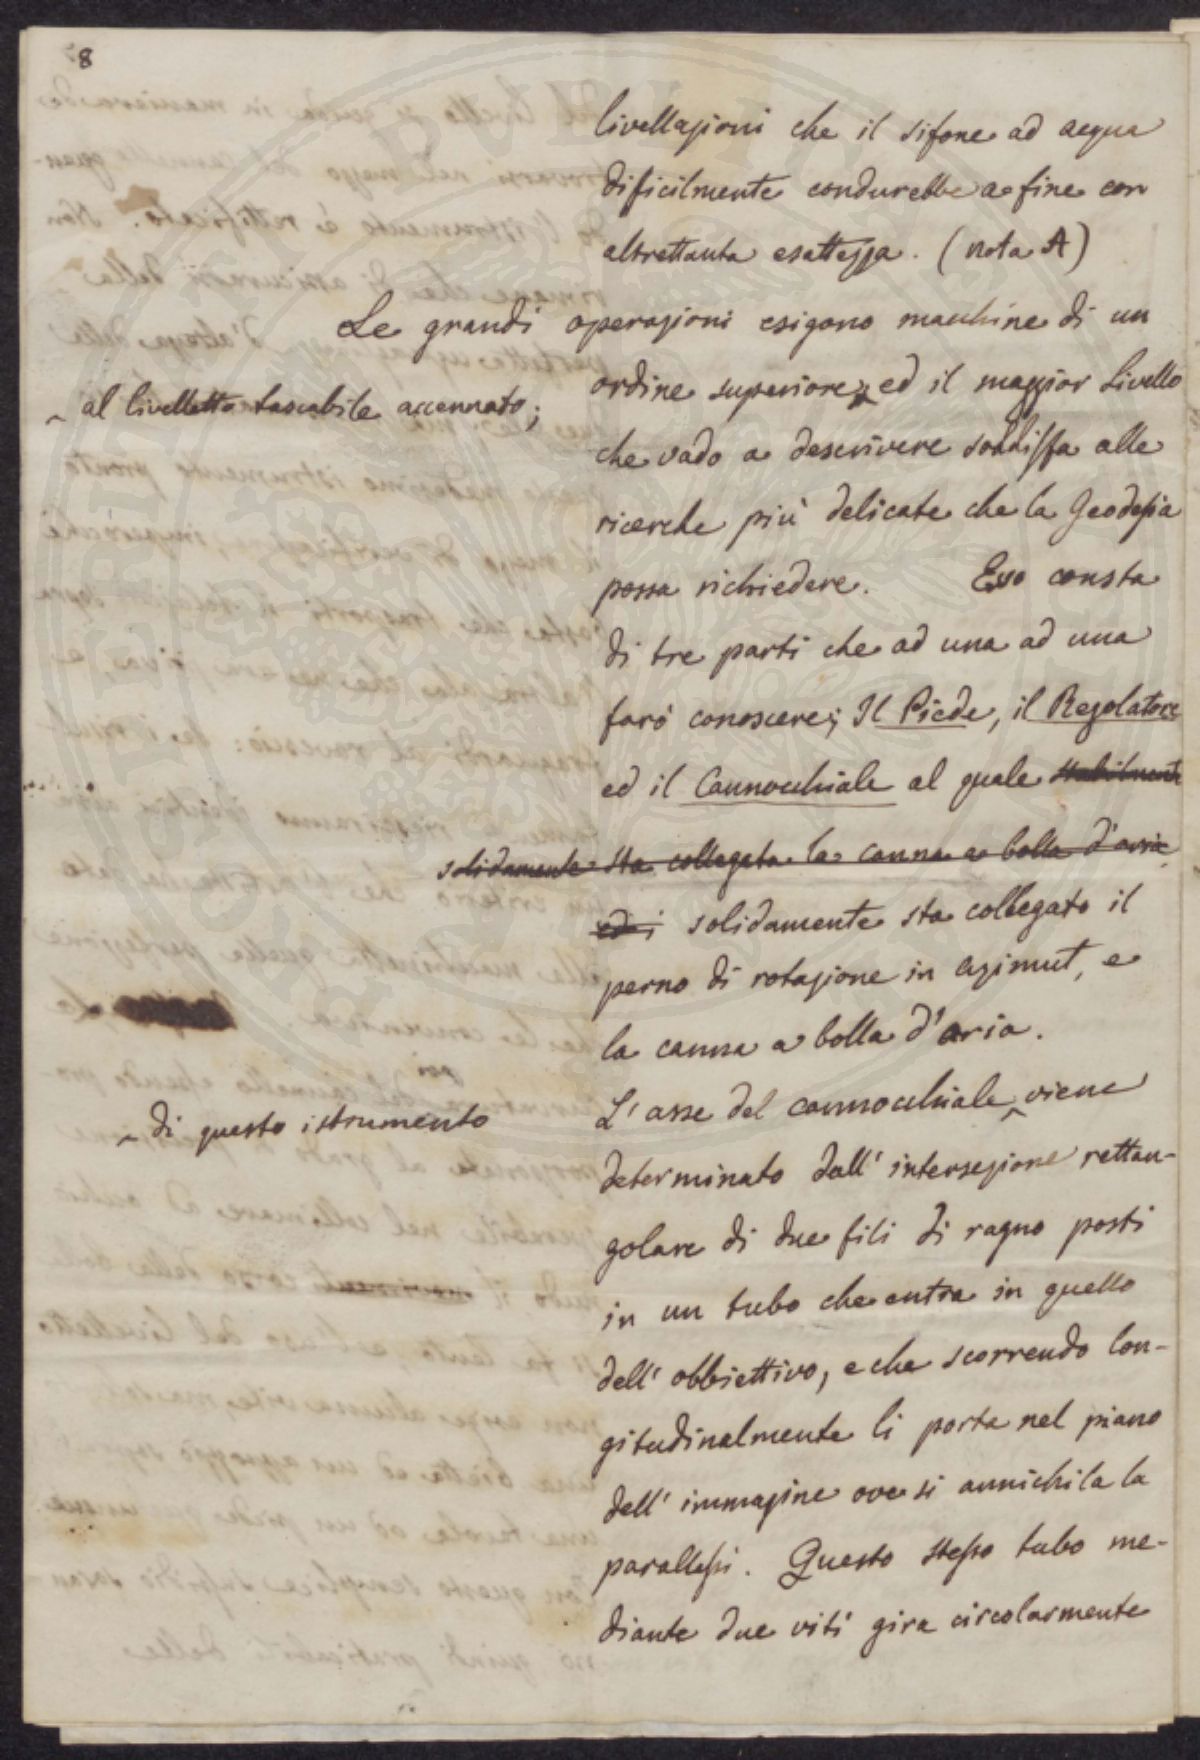 8
livellazioni che il sifone ad acqua
dificilmente condurebbe a fine con
altrettanta esattezza. (nota A)
Le grandi operazioni esigono macchine di un
ordine superiore ed il maggior Livello
al livelletto tascabile accennato;
che vado a descrivere soddisfa alle
ricerche più delicate che la Geodesia
possa richiedere. Esso consta
di tre parti che ad una ad una
farò conoscere; Il Piede, il Regolatore
ed il Cannocchiale al quale stabilmente
solidamente sta collegata la canna a bolla d'aria
ed i solidamente sta collegato il
perno di rotazione in azimut, e
la canna a bolla d'aria.
L'asse del cannocchiale viene
di questo istrumento
determinato dall' intersezione rettan-
golare di due fili di ragno posti
in un tubo che entra in quello
dell' obbiettivo, e che scorrendo lon-
gitudinalmente li porta nel piano
dell' immagine ove si annichila la
parallassi. Questo stesso tubo me-
diante due viti gira circolarmente